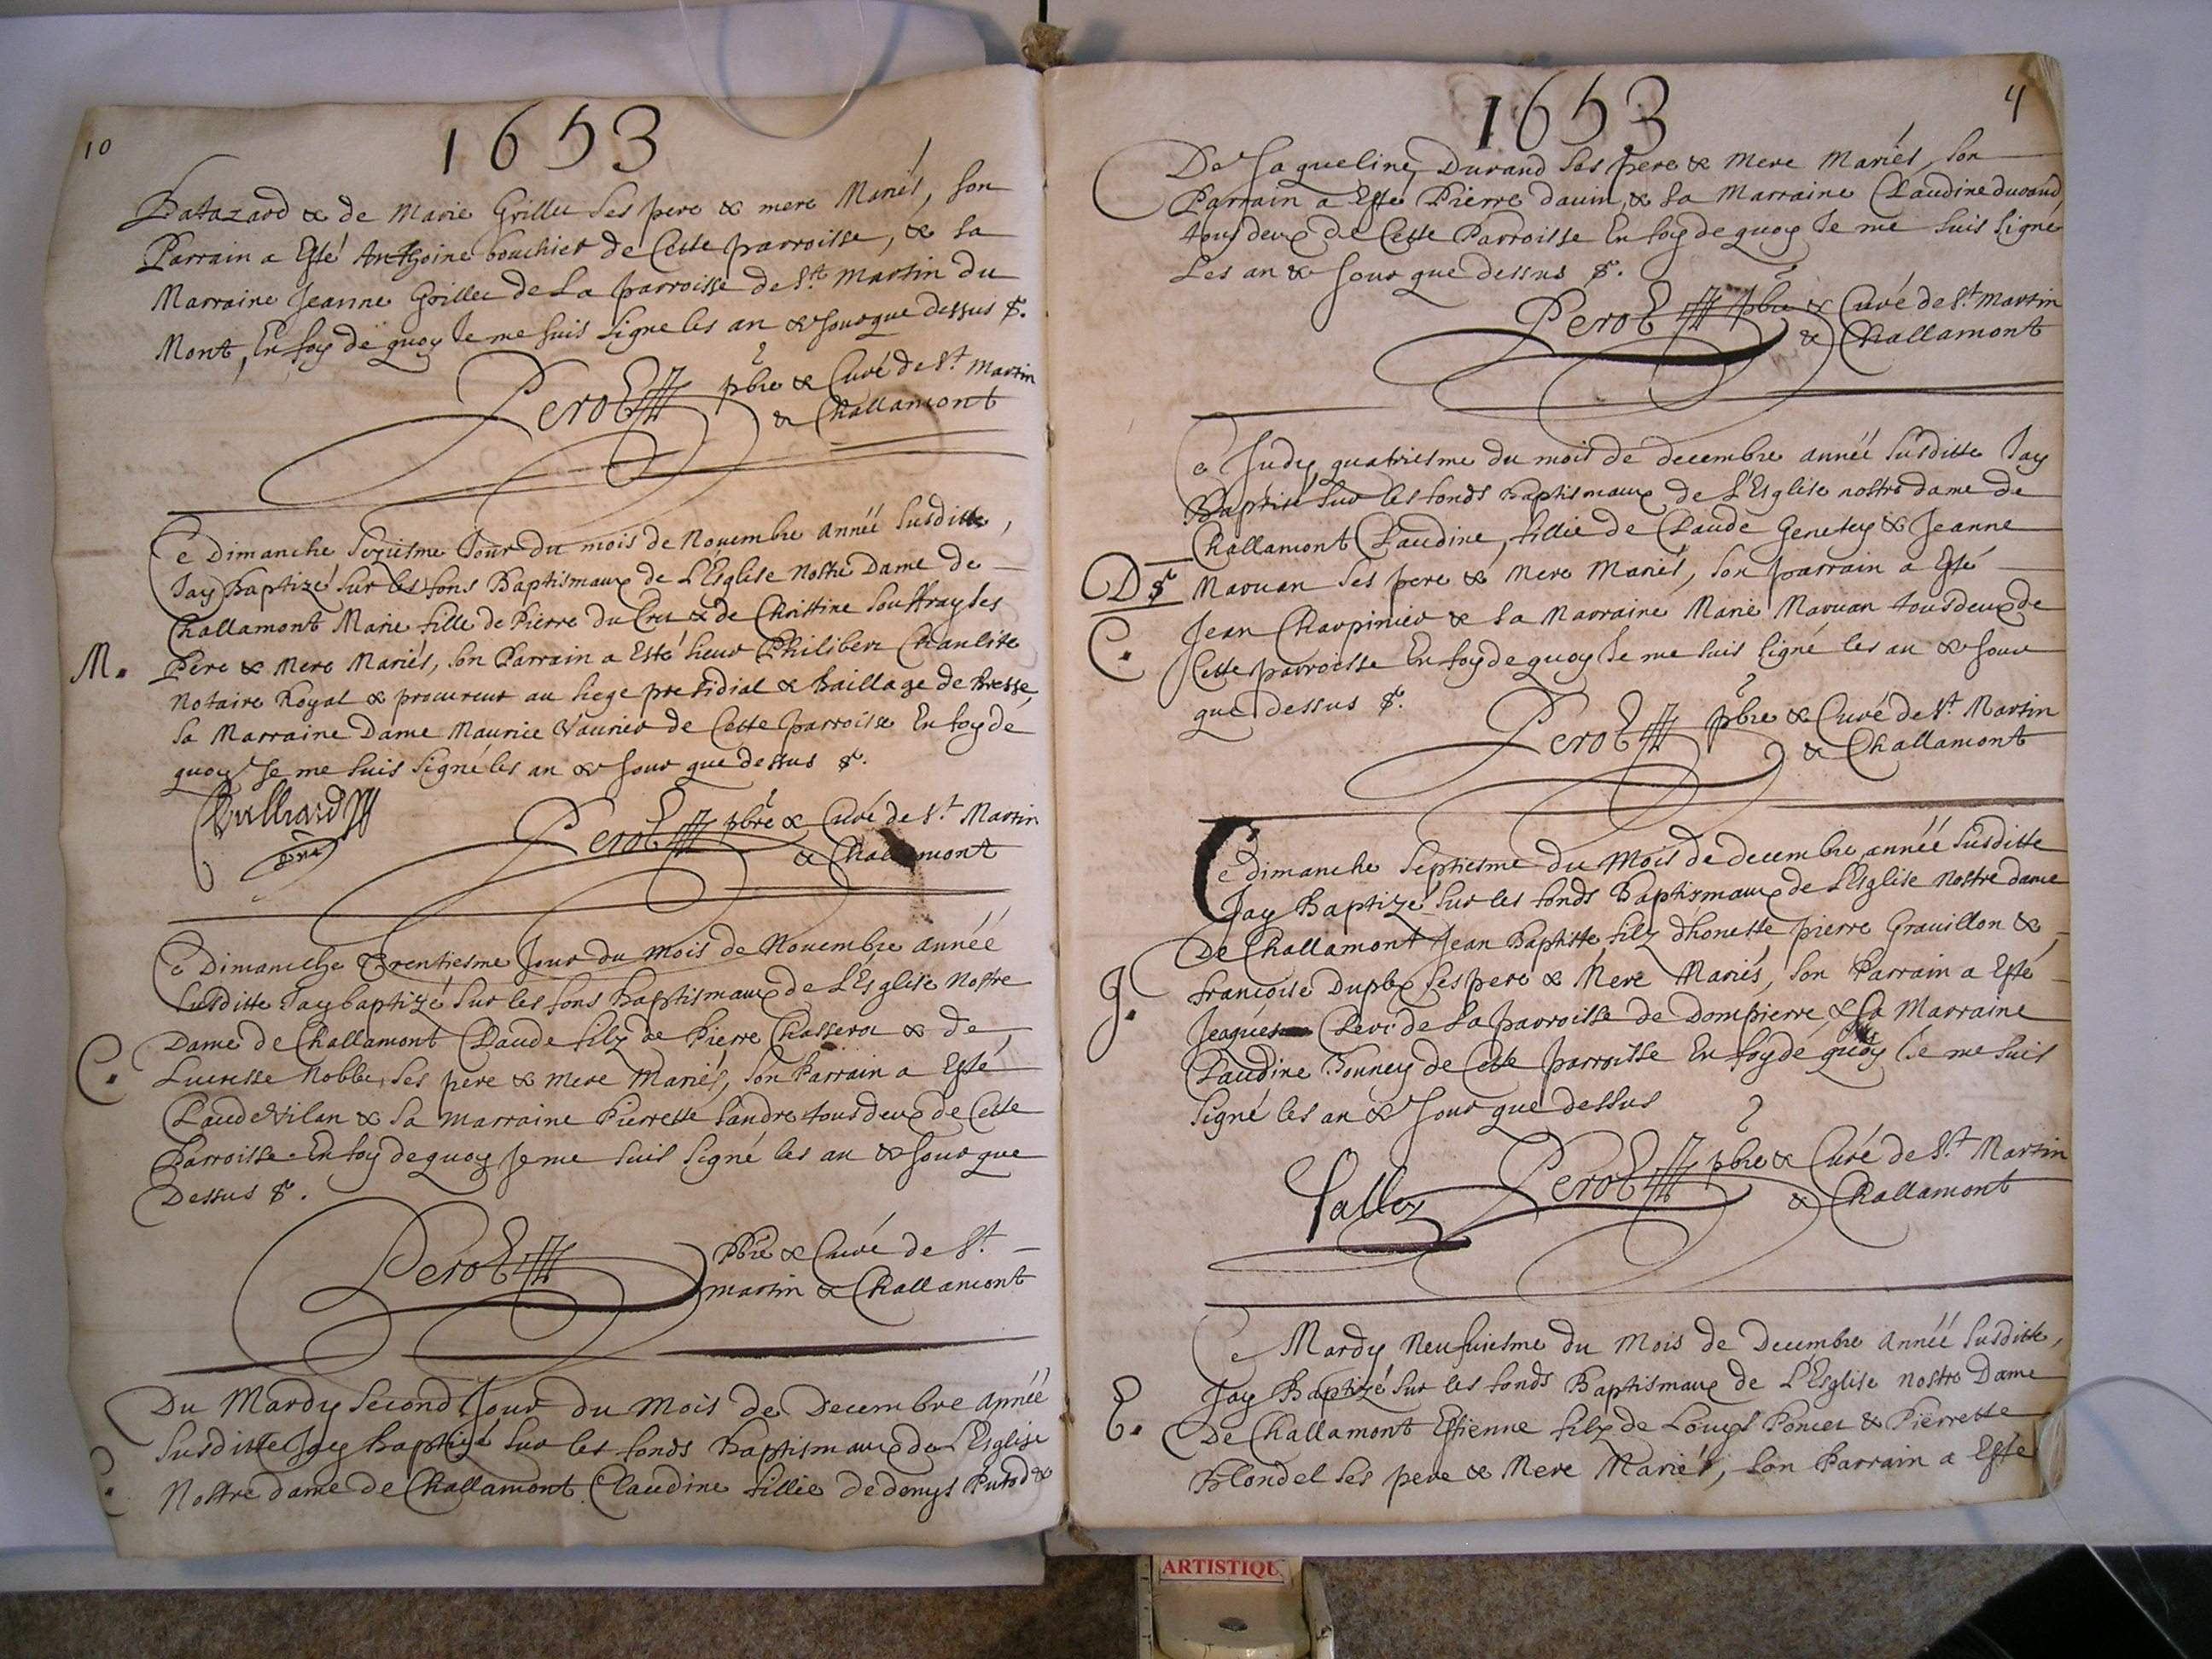 10
1653
Batazard & de Marie Grillet ses pere & mere Mariés, son
Parrain a Esté Anthoine bouchier de Cette parroisse, & sa
Marraine Jeanne Grillet de La parroisse de St. Martin du
Mont, En foy de quoy Je me suis signe les an & Jour que dessus &.
Perot pbre & Curé de St. Martin
& Challamont
Ce Dimanche seziesme Jour du mois de Nouembre année susditte,
Jay Baptizé sur les fons Baptismaux de L'Esglise Nostre Dame de
Challamont Marie fille de Pierre du Cret & de Christine Souffray ses
M. Pere & Mere Mariés, son Parrain a Esté sieur Philibert
Notaire Royal & procureur au siege presidial & baillage de Bresse,
sa Marraine Dame Maurice Vaurier de Cette parroisse En foy de
quoy Je me suis signé les an & Jour que dessus &.
Perot pbre & Curé de St. Martin
& Challamont
Ce Dimanche Trentiesme Jour du Mois de Nouembre année
susditte Jay baptizé sur les fons Baptismaux de L'Esglise Nostre
Dame de Challamont Claude filz de Pierre Chasserot & de
C. Lucresse Nobbe, ses pere & mere Mariés, son Parrain a Esté
Claude Vilan & sa Marraine Pierrette Sandre tous deux de Cette
Parroisse. En foy de quoy Je me suis signé les an & Jour que
Dessus &.
Perot Pbre & Curé de St.
martin & Challamont
Du Mardy second Jour du Mois de Decembre Année
susditte Jay baptizé sur les fonds baptismaux de L'Esglise
C. Nostre dame de Challamont Claudine fillie de denys Putod &
4
1653
De Jaqueline Durand ses pere & Mere Mariés, son
Parrain a Esté Pierre dauin, & sa Marraine Claudine durand,
tous deux de Cette Parroisse En foy de quoy Je me suis signé
Les an & Jour que dessus &.
Perot Pbre & Curé de St. Martin
& Challamont
Ce Judy quatriesme du mois de decembre année susditte Jay
Baptisé sur les fonds baptismaux de L'Esglise nostre dame de
Challamont Claudine, fillie de Claude Genetey & Jeanne
D & Marouan ses pere & Mere Mariés, son parrain a Esté
Jean Charpinier & sa Marraine Marie Marouan tous deux de
C. Cette parroisse En foy de quoy Je me suis signé les an & Jour
que dessus &.
Perot pbre & Curé de St. Martin
& Challamont
Ce dimanche septiesme du Mois de decembre année susditte
Jay Baptizé sur les fonds Baptismaux de L'Esglise Nostre dame
De Challamont Jean Baptiste filz d'honeste pierre Grauillon &
J. francoise Duplex ses pere & Mere Mariés, son Parrain a Esté
Jeaques de La parroisse de Dompierre, & sa Marraine
Claudine Bonney de Cette parroisse En foy de quoy Je me suis
signé les an & Jour que dessus
Perot pbre & Curé de St. Martin
& Challamont
Ce Mardy Neufuiesme du Mois de Decembre Année susditte,
Jay Baptizé sur les fonds Baptismaux de L'Esglise nostre Dame
E. De Challamont Estienne filz de Louys Poncet & Pierrette
Blondel ses pere & Mere Mariés, son Parrain a Esté
ARTISTIQU